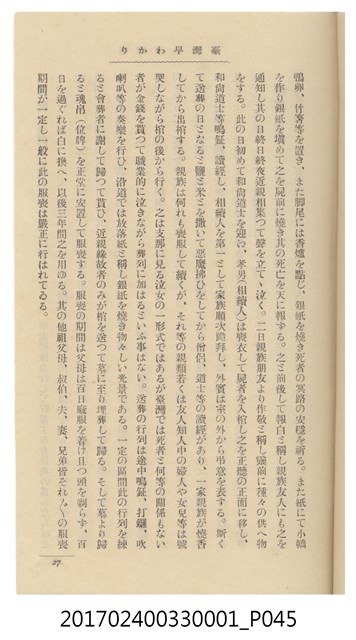 臺灣早わかり
鴨卵、竹箸等を置き、また脚尾には香爐を點し、銀紙を燒き死者の冥路の安穩を祈る。また紙にて小轎
を作り銀紙を填めて之を屍前に燒き其の死亡を天に報ずる。之と前後して報白と稱し親族友人にも之を
通知し其の日終日終夜近親相集つて聲を立てゝ泣く。二日親族朋友より作敬と稱し靈前に種々の供へ物
をする。此の日初めて和尙道士を迎ひ、孝男(相續人)は喪衣して屍者を入棺し之を正廳の正面に移し、
和尙道士等鳴鉦、讀經し、相續人を第一として家族順次跪拜し、外賓は室の外から弔意を表する。斯く
て送葬の日となると鹽と米とを撒いて惡魔拂ひをしてから僧侶、道士等の讀經があり、一家親族が燒香
してから出棺する。親族は何れも喪服して續くが、それ等の親類若くは友人知人中の婦人や女兒等は號
哭しながら棺の後から行く。之は支那に見る泣女の一形式ではあるが臺灣では死者と何等の關係もない
者が金錢を貰つて職業的に泣きながら葬列に加はるといふ事はない。送葬の行列は途中鳴鉦、打鑼、吹
喇叭等の奏樂を行ひ、沿道では放落紙と稱し銀紙を燒き物々しい光景である。一定の區間此の行列を練
ると會葬者に謝して歸つて貰ひ、近親緣故者のみが棺を送つて墓に至り埋葬して歸る。そして墓より歸
ると魂帛(位牌)を正堂に安置して服喪する。服喪の期間は父母は百日麻服を着け且つ頭を剃らず、百
日を過ぐれば白に換へ、以後三年間之を用ゐる。其の他祖父母、叔伯、夫、妻、兄弟皆それ〴〵の服喪
期間が一定し一般に此の服喪は嚴正に行はれてゐる。
27
201702400330001_P045